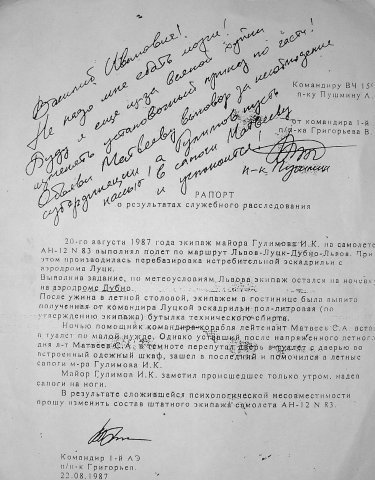 Василий Иванович!
Не надо мне ебать мозги!
Буду я еще из-за всякой хуйни
изменять установочный приказ по части!
Объяви Матвееву выговор за несоблюдение
субординации, а Гулимов пусть
нассыт в сапоги Матвееву
и успокоится!
п-к Пушмин
Командиру ВЧ
п-ку Пушмину А.
от командира 1-й
п/п-ка Григорьева В.
РАПОРТ
о результатах служебного расследования
20-го августа 1987 года экипаж майора Гулимова И.К. на самолете
АН-12 N 83 выполнял полет по маршруту Львов-Луцк-Дубно-Львов. При
этом производилась перебазировка истребительной эскадрильи с
аэродрома Луцк.
Выполнив задание, по метеоусловиям Львова экипаж остался на ночевку
на аэродроме Дубно.
После ужина в летной столовой, экипажем в гостинице была выпита
полученная от командира Луцкой эскадрильи пол-литровая (по
утверждению экипажа) бутылка технического спирта.
Ночью помощник командира корабля лейтенант Матвеев С.А. встал
в туалет по малой нужде. Однако уставший после напряженного летного
дня л-т Матвеев С.А. в темноте перепутал дверь в туалет с дверью во
встроенный одежный шкаф, зашел в последний и помочился в летные
сапоги м-ра Гулимова И.К.
Майор Гулимов И.К. заметил происшедшее только утром, надев
сапоги на ноги.
В результате сложившейся психологической несовместимости
прошу изменить состав штатного экипажа самолета АН-12 N 83.
Командир 1-й АЭ
п/п-к Григорьев.
22.08.1987